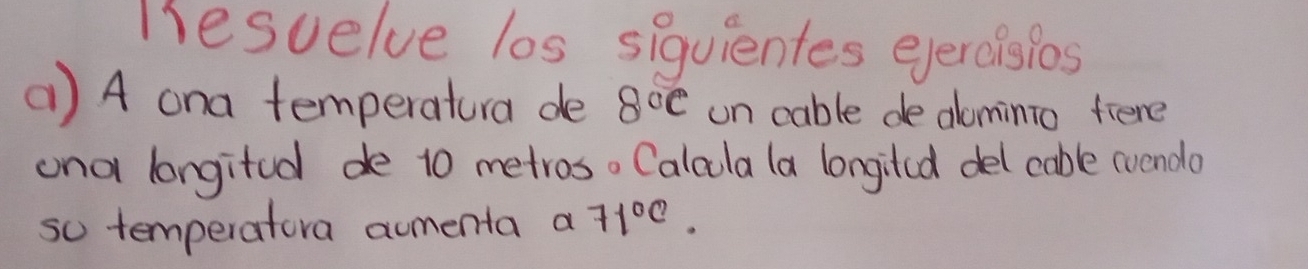 Resuelve los siguientes ejercisios
a) A una temperatura de 8°C un cable de aluminio tiene
una longitud de 10 metros. Calcula la longitud del cable cuando
su temperatura aumenta a 71°C.